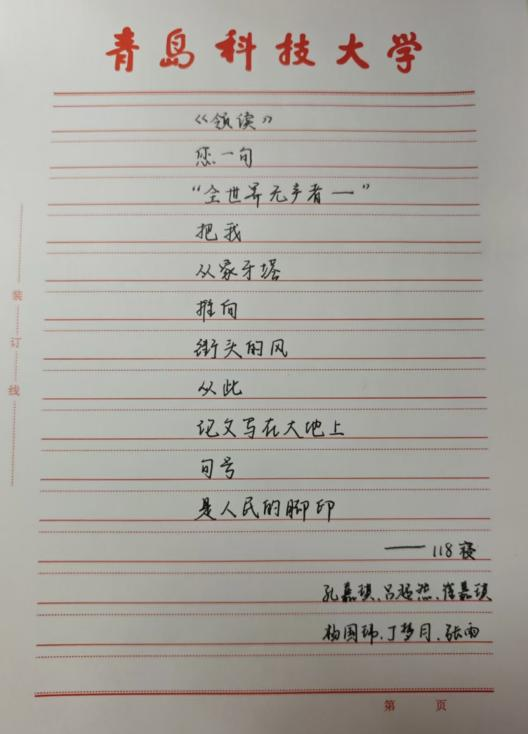 青岛科技大学
《领读》
您一句
“全世界无产者一”
把我
从象牙塔
推向
街头的风
从此
论文写在大地上
句号
是人民的脚印
——118寝
孔嘉琪、吕、崔嘉琪
杨国玮、丁梦月、张雨
装订线
第 页